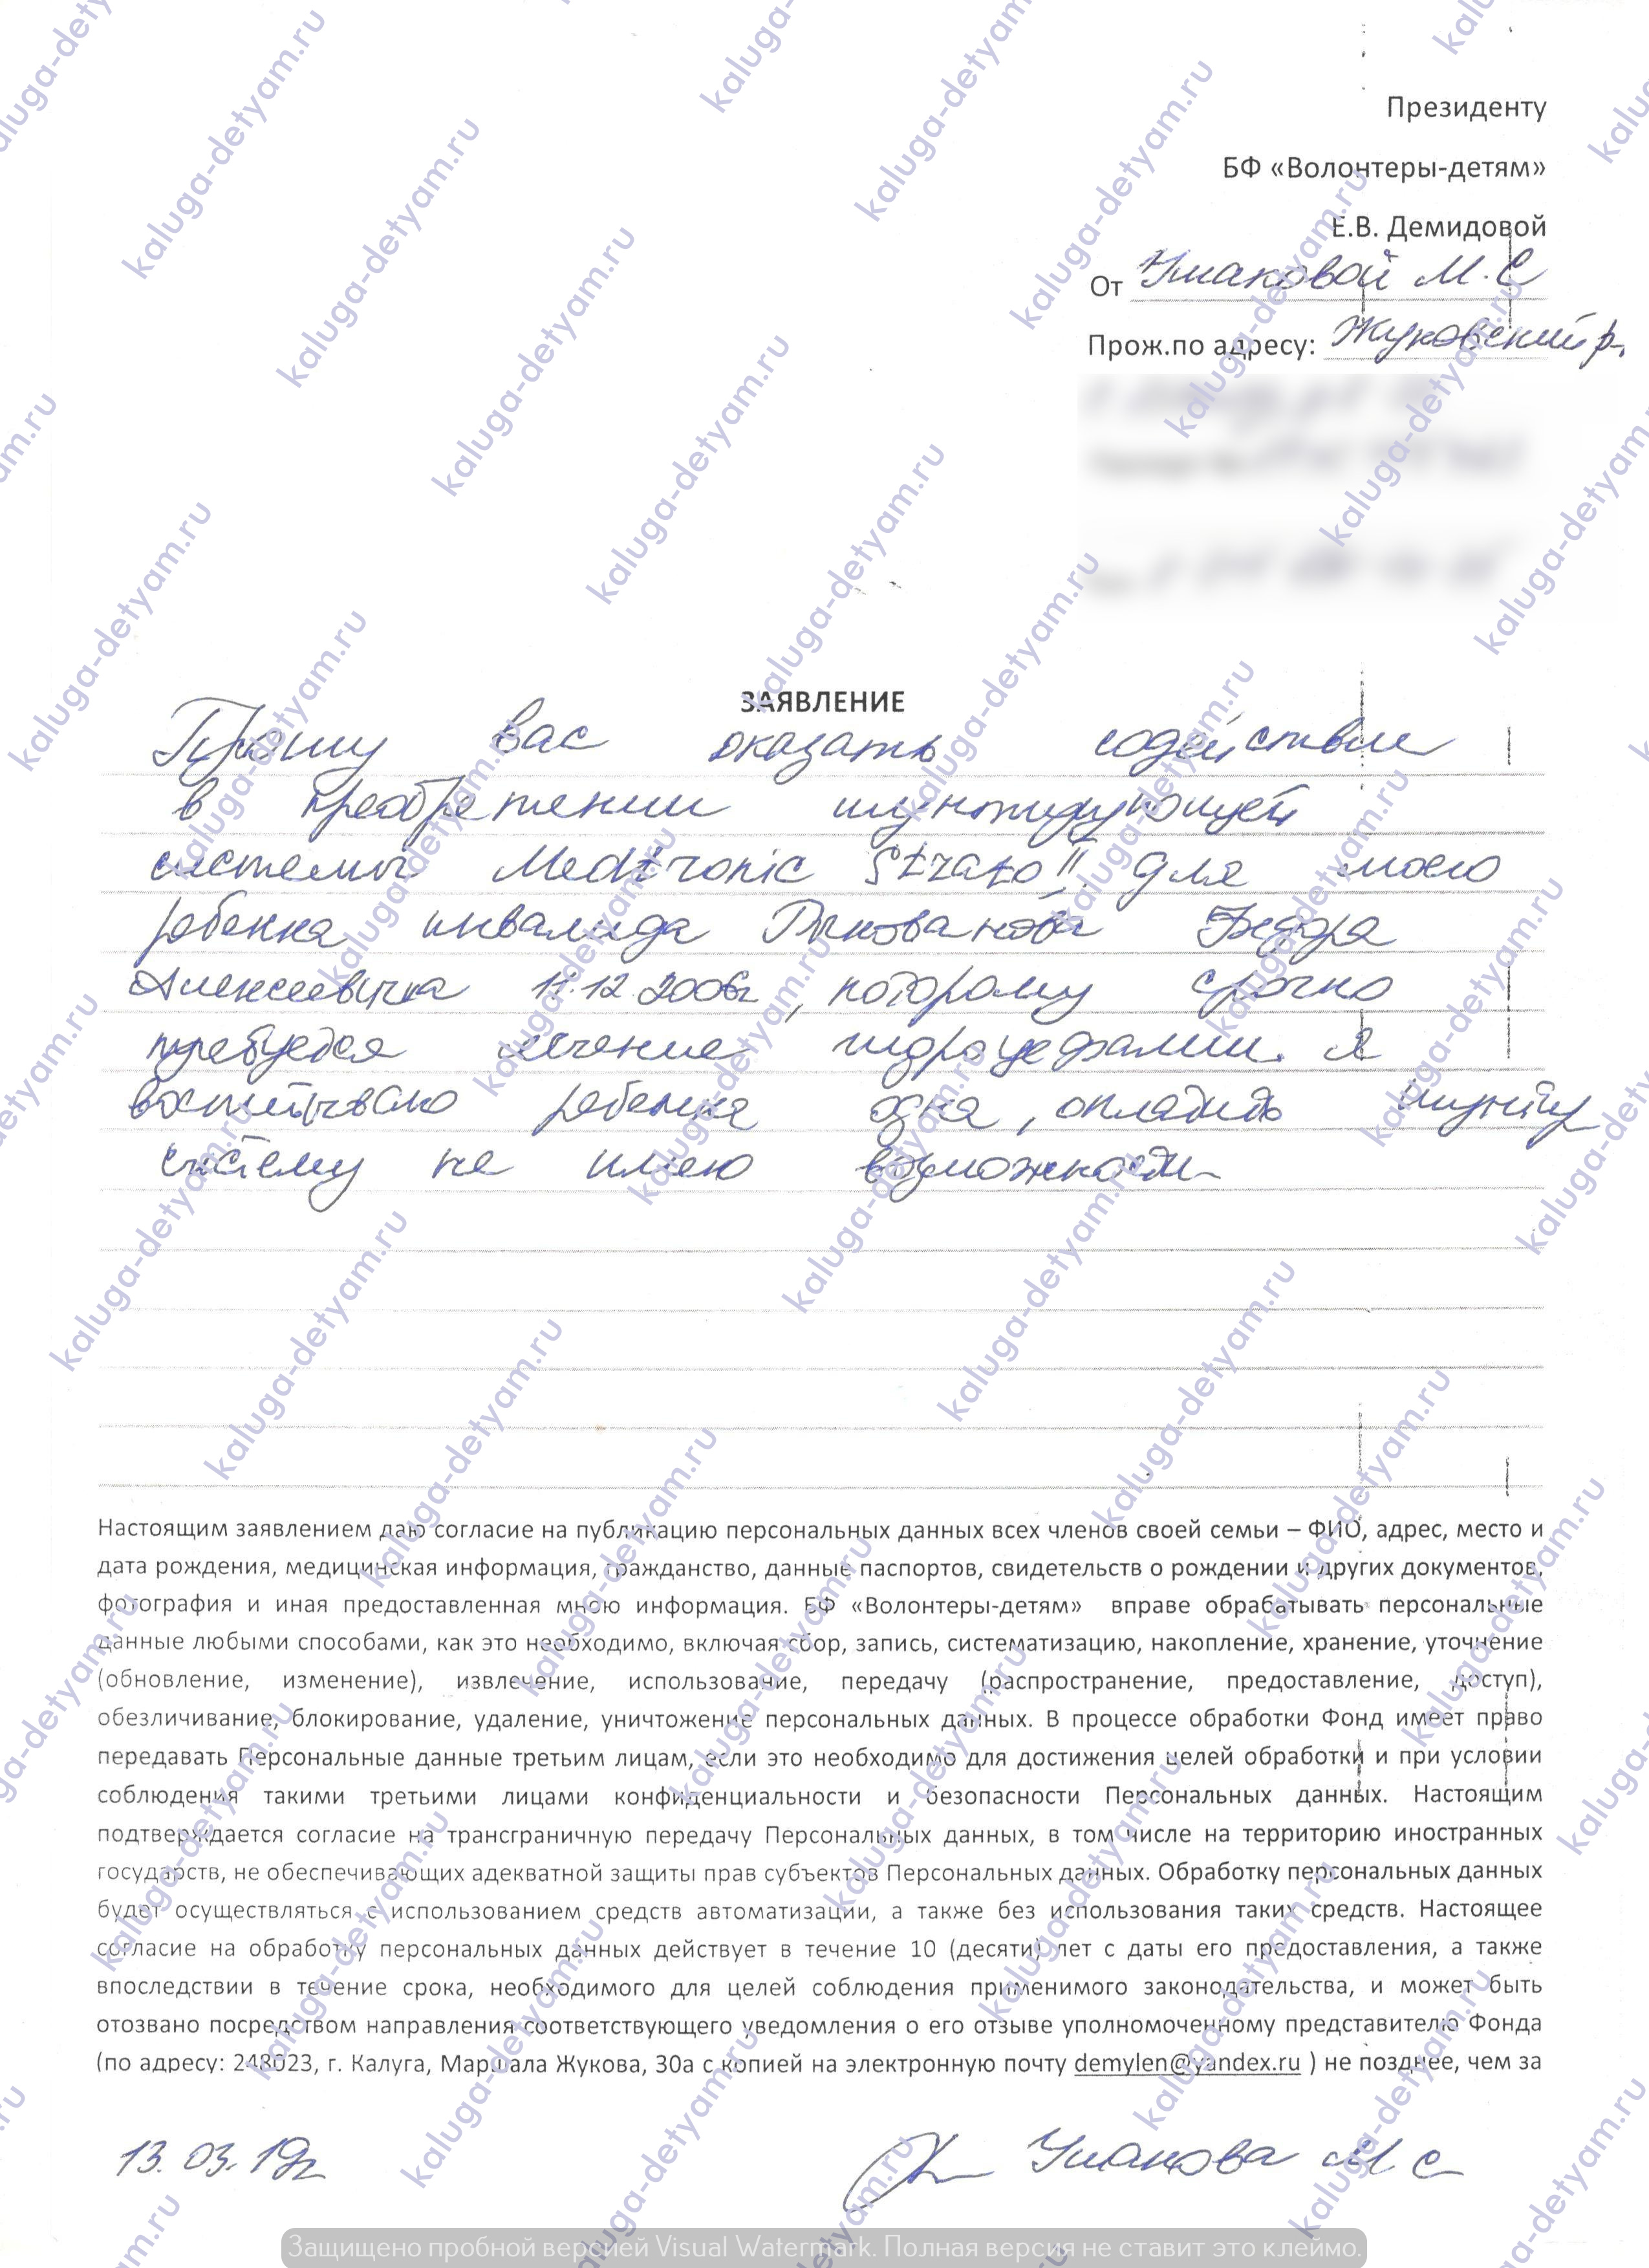 Президенту
БФ «Волонтеры-детям»
Е.В. Демидовой
От Ушаковой М.С
Прож.по адресу: Жуковский р-,
ЗАЯВЛЕНИЕ
Прошу вас оказать содействие
в преобретении шунтирующей
системы Medtronic Strata II для моего
ребенка инвалида Федора
Алексеевича 11.12.2006г, которому срочно
требуется лечение гидроцефалии. Я
воспитываю ребенка одна, оплатить шунт
систему не имею возможности
Настоящим заявлением даю согласие на публикацию персональных данных всех членов своей семьи – ФИО, адрес, место и
дата рождения, медицинская информация, гражданство, данные паспортов, свидетельств о рождении и других документов,
фотография и иная предоставленная мною информация. БФ «Волонтеры-детям» вправе обрабатывать персональные
данные любыми способами, как это необходимо, включая сбор, запись, систематизацию, накопление, хранение, уточнение
(обновление, изменение), извлечение, использование, передачу (распространение, предоставление, доступ),
обезличивание, блокирование, удаление, уничтожение персональных данных. В процессе обработки Фонд имеет право
передавать Персональные данные третьим лицам, если это необходимо для достижения целей обработки и при условии
соблюдения такими третьими лицами конфиденциальности и безопасности Персональных данных. Настоящим
подтверждается согласие на трансграничную передачу Персональных данных, в том числе на территорию иностранных
государств, не обеспечивающих адекватной защиты прав субъектов Персональных данных. Обработку персональных данных
будет осуществляться с использованием средств автоматизации, а также без использования таких средств. Настоящее
согласие на обработку персональных данных действует в течение 10 (десяти) лет с даты его предоставления, а также
впоследствии в течение срока, необходимого для целей соблюдения применимого законодательства, и может быть
отозвано посредством направления соответствующего уведомления о его отзыве уполномоченному представителю Фонда
(по адресу: 248023, г. Калуга, Маршала Жукова, 30а с копией на электронную почту demylen@yandex.ru ) не позднее, чем за
13.03.19г Ушакова М С
kaluga-detyam.ru
Защищено пробной версией Visual Watermark. Полная версия не ставит это клеймо.